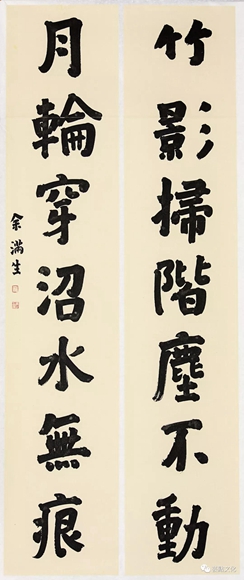 竹影掃階塵不動
月輪穿沼水無痕
余滿生